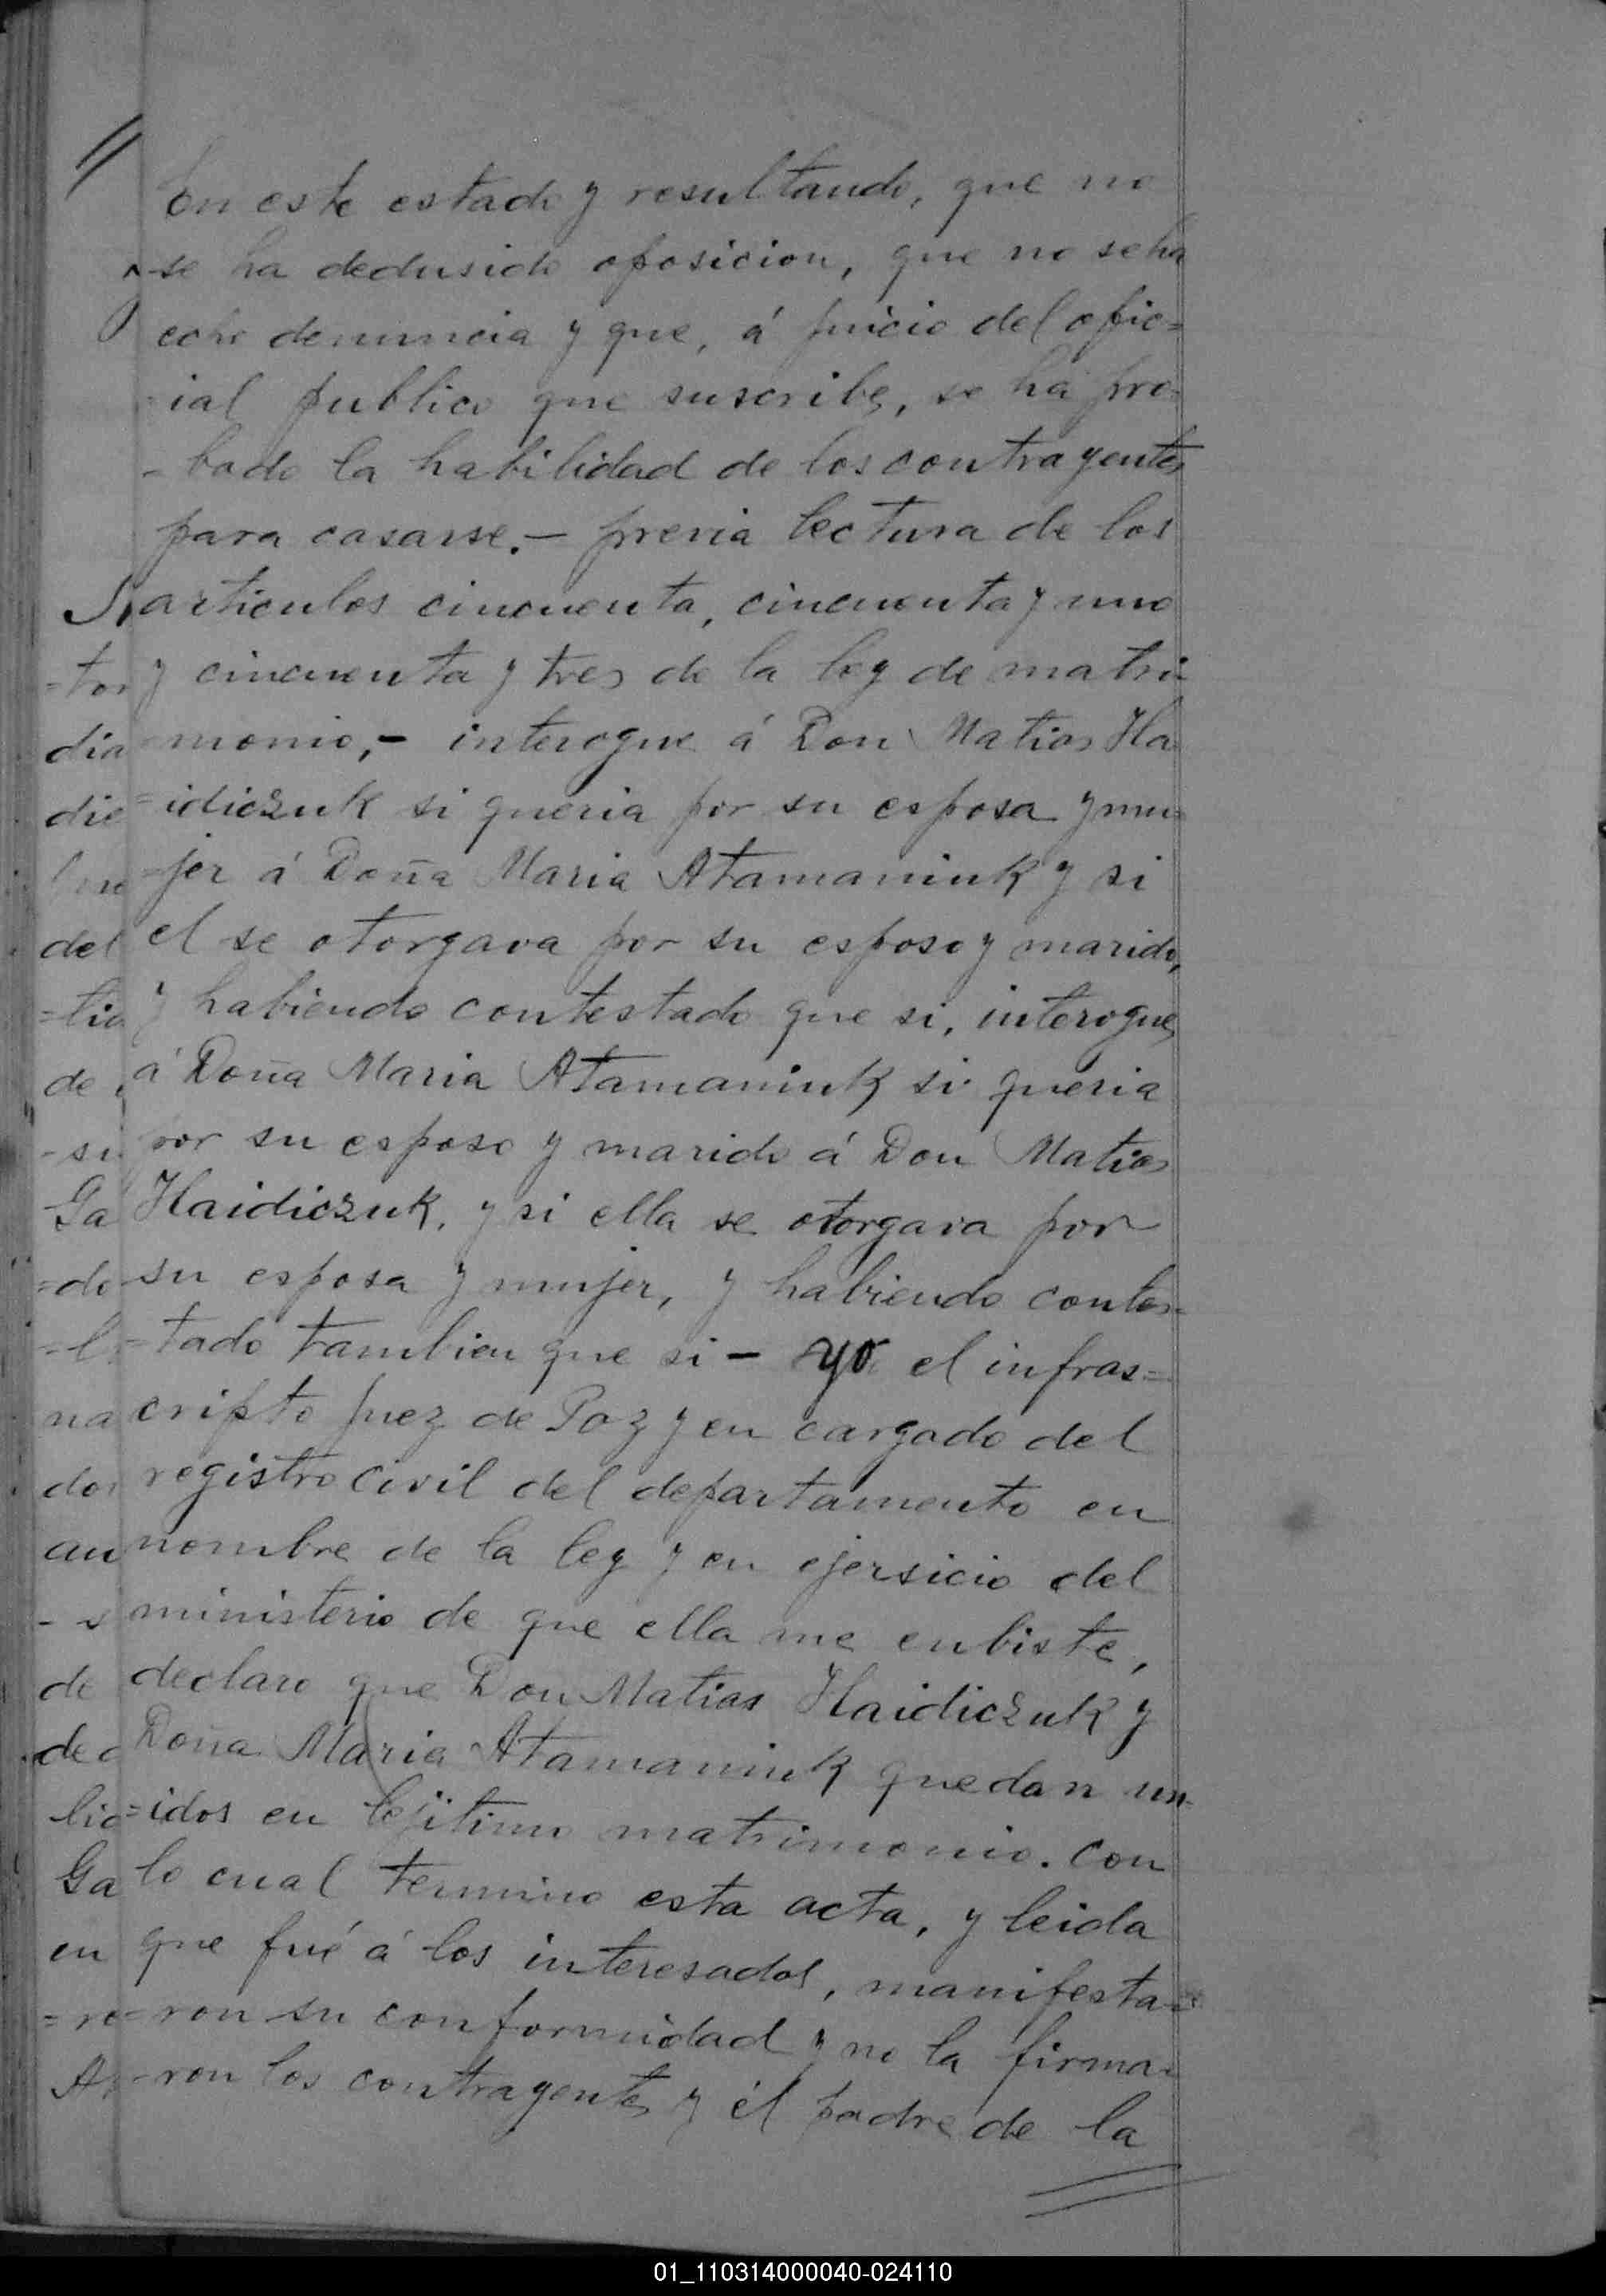 En este estado y resultando, que no
se ha dedusido oposicion, que no se ha
echo denuncia y que, á juicio del ofic=
ial publico que suscribe, se ha pro-
-bado la habilidad de los contrayentes
para casarse.- previa lectura de los
articulos cincuenta, cincuenta y uno
y cincuenta y tres de la ley de matri
monio,- interogue á Don Matias Ha
=idiczuk si queria por su esposa y mu=
=jer á Doña Maria Atamaniuk y si
el se otorgava por su esposo y marido,
y habiendo contestado que si, interogue
á Doña Maria Atamaniuk si queria
por su esposo y marido á Don Matias
Haidiczuk, y si ella se otorgava por
su esposa y mujer, y habiendo contes=
=tado tambien que si - yo el infras=
cripto juez de Paz y en cargado del
registro civil del departamento en
nombre de la ley y en ejersicio del
ministerio de que ella me enbiste,
declaro que Don Matias Haidiczuk y
Doña Maria Atamaniuk quedan un=
=idos en lejitimo matrimonio. Con
lo cual termino esta acta, y leida
que fué á los interesados, manifesta=
=ron su conformidad y no la firma=
-ron los contrayentes y él padre de la
01_110314000040-024110